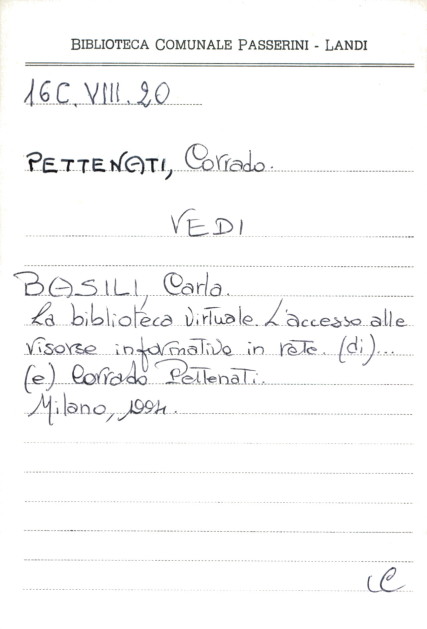 BIBLIOTECA COMUNALE PASSERINI - LANDI
16C.VIII.20
PETTENATI, Corrado.
VEDI
BASILI, Carla.
La biblioteca virtuale. L'accesso alle
risorse informative in rete. (di)...
(e) Corrado Pettenati.
Milano, 1994.